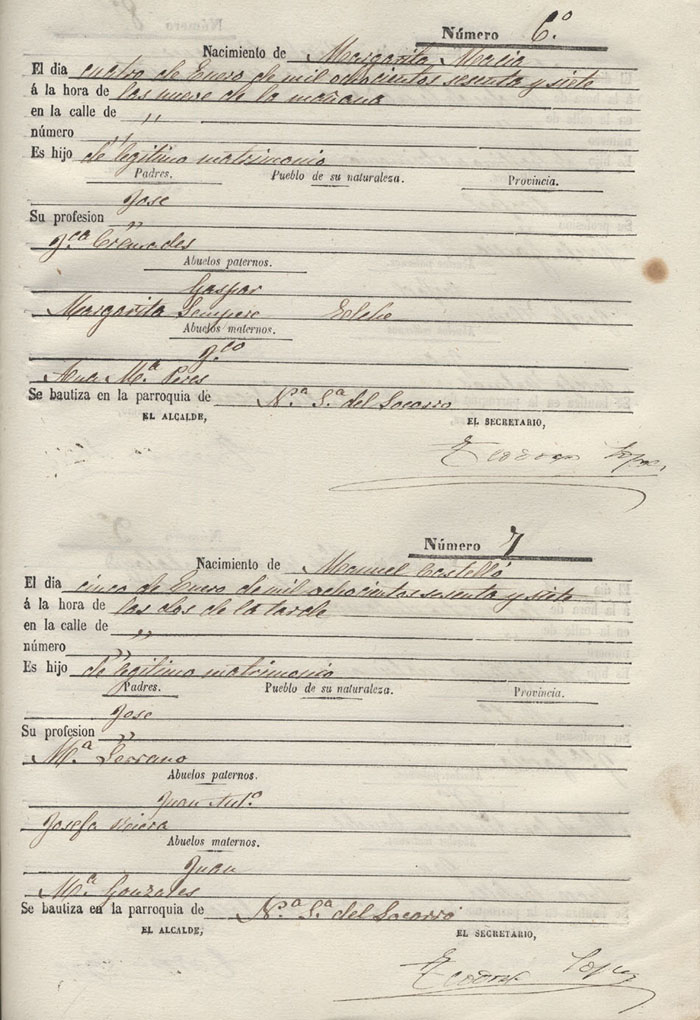 Número 6.º
Nacimiento de Margarita Macia
El dia cuatro de Enero de mil ochocientos sesenta y siete
á la hora de las nueve de la mañana
en la calle de "
número "
Es hijo de legitimo matrimonio
Padres. Pueblo de su naturaleza. Provincia.
Jose
Su profesion "
Fca Cremades
Abuelos paternos.
Gaspar
Margarita Sempere Elche
Abuelos maternos.
Fco
Ana Mª Peres
Se bautiza en la parroquia de Nª Sª del Socorro
EL ALCALDE, EL SECRETARIO,
Número 7
Nacimiento de Manuel Castelló
El dia cinco de Enero de mil ochocientos sesenta y siete
á la hora de las dos de la tarde
en la calle de "
número "
Es hijo de legitimo matrimonio
Padres. Pueblo de su naturaleza. Provincia.
Jose
Su profesion "
Mª Serrano
Abuelos paternos.
Juan Antº
Josefa
Abuelos maternos.
Juan
Mª Gonzales
Se bautiza en la parroquia de Nª Sª del Socorro
EL ALCALDE, EL SECRETARIO,